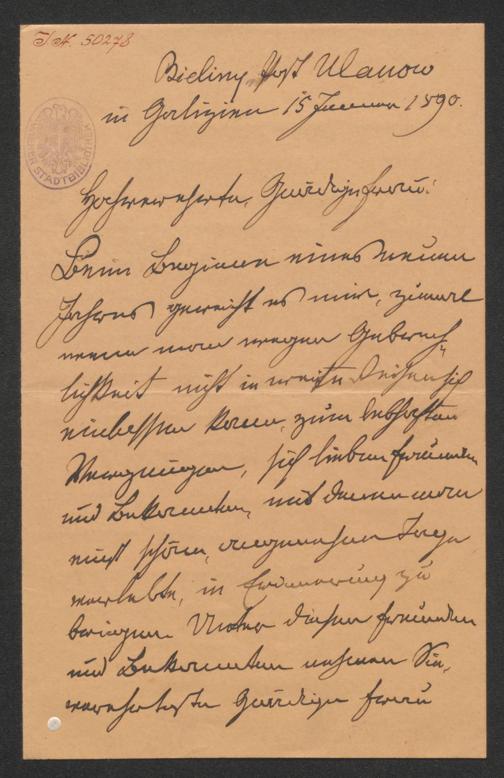 I.N. 50278
STADTBIBLIOTHEK
Bieliny, Post Ulanow
in Galizien 15 Januar 1890.
Hochverehrte, Gnädige Frau!
Beim Beginne eines neuen
Jahres gereicht es mir, zumal
wenn man wegen Gebrech„
lichkeit nicht in weite Reisen sich
einlassen kann, zum lebhaften
Vergnügen, sich lieben Freunden
und Bekannten, mit denen man
einst schöne, angenehme Tage
verlebte, in Erinnerung zu
bringen. Unter diesen Freunden
und Bekannten nehmen Sie,
verehrteste Gnädige Frau